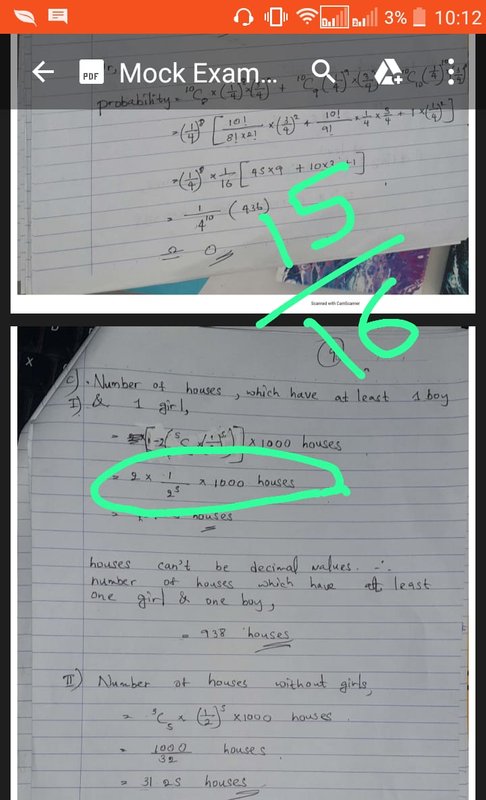 3% 10:12
PDF Mock Exam...
probability = ¹⁰C₈ × (1/4)⁸ × (3/4)² + ¹⁰C₉ (1/4)⁹ × (3/4) + ¹⁰C₁₀ (1/4)¹⁰
= (1/4)⁸ [10!/(8! × 2!) × (3/4)² + 10!/9! × 1/4 × 3/4 + 1 × (1/4)²]
= (1/4)⁸ × 1/16 [45 × 9 + 10 × 3 + 1]
= 1/4¹⁰ (436)
≃ 0
15/16
Scanned with CamScanner
4
c). Number of houses, which have at least 1 boy
I) & 1 girl,
× 1000 houses
= 2 × 1/2⁵ × 1000 houses
houses
houses can't be decimal values. ∴
number of houses which have at least
one girl & one boy,
= 938 houses
II) Number of houses without girls,
= ⁵C₅ × (1/2)⁵ × 1000 houses.
= 1000/32 houses
= 31.25 houses